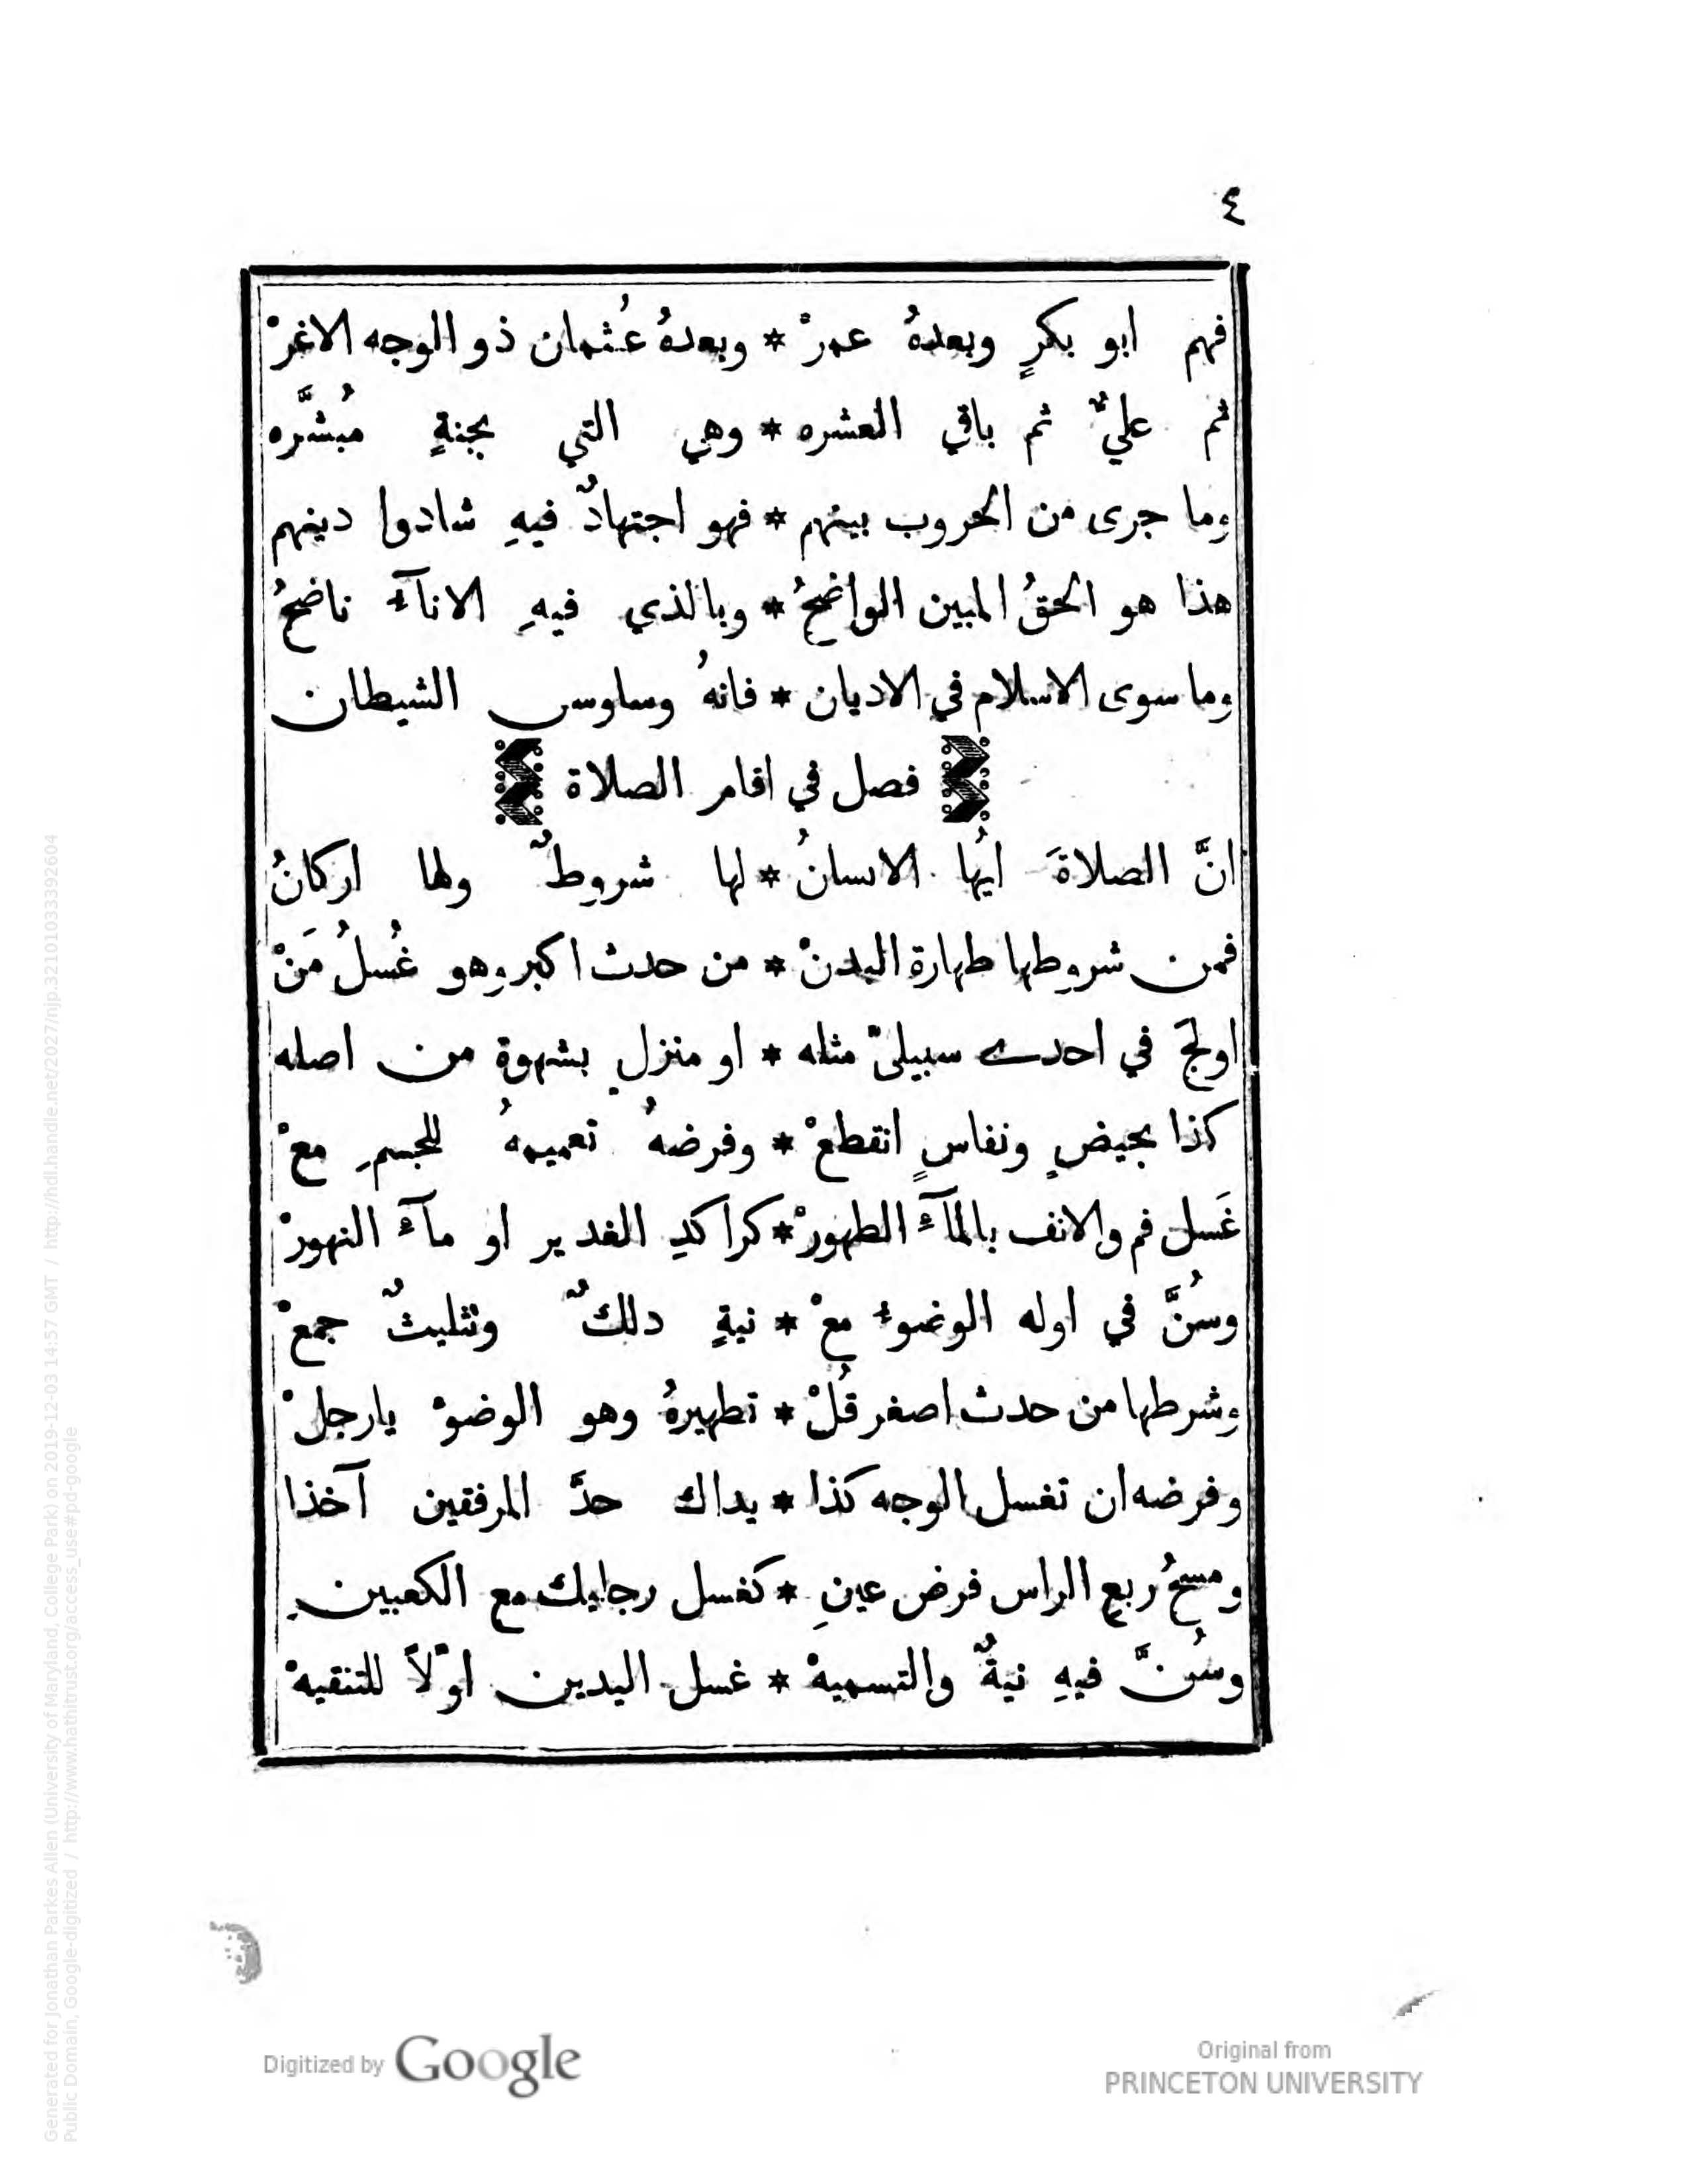 ٤
فهم ابو بكرٍ وبعدهُ عمرْ * وبعدهُ عُثمان ذو الوجه الاغرْ
ثم عليٌّ ثم باقي العشره * وهي التي بجنةٍ مُبشَّره
وما جرى من الحروب بينهم * فهو اجتهادٌ فيهِ شادوا دينهم
هذا هو الحقُ المبين الواضحُ * وبالذي فيهِ الانآء ناضحُ
وما سوى الاسلام في الاديان * فانهُ وساوس الشيطان
فصل في اقام الصلاة
انَّ الصلاةَ ايُها الانسانُ * لها شروطٌ ولها اركانُ
فمن شروطها طهارة البدنْ * من حدث اكبر وهو غُسلُ مَنْ
اولجَ في احدے سبيليْ مثله * او منزلٍ بشهوة من اصله
كذا بحيضٍ ونفاسٍ انقطعْ * وفرضهُ تعميمهُ للجسمِ معْ
غَسل فم والانف بالمآء الطهورْ * كراكدِ الغدير او مآء النهورْ
وسُنَّ في اوله الوضوء معْ * نيةٍ دلكٌ وتثليثٌ جمعْ
وشرطها من حدث اصغر قُلْ * تطهيرهُ وهو الوضوْ يارجلْ
وفرضه ان تغسل الوجه كذا * يداك حدَّ المرفقين آخذا
ومسحُ ربع الراس فرض عينِ * كغسل رجليك مع الكعبينِ
وسُنَّ فيهِ نيةٌ والتسميهْ * غسل اليدين اوّلاً للتنقيهْ
Generated for Jonathan Parkes Allen (University of Maryland, College Park) on 2019-12-03 14:57 GMT / http://hdl.handle.net/2027/njp.32101033392604
Public Domain, Google-digitized / http://www.hathitrust.org/access_use#pd-google
Digitized by Google
Original from
PRINCETON UNIVERSITY